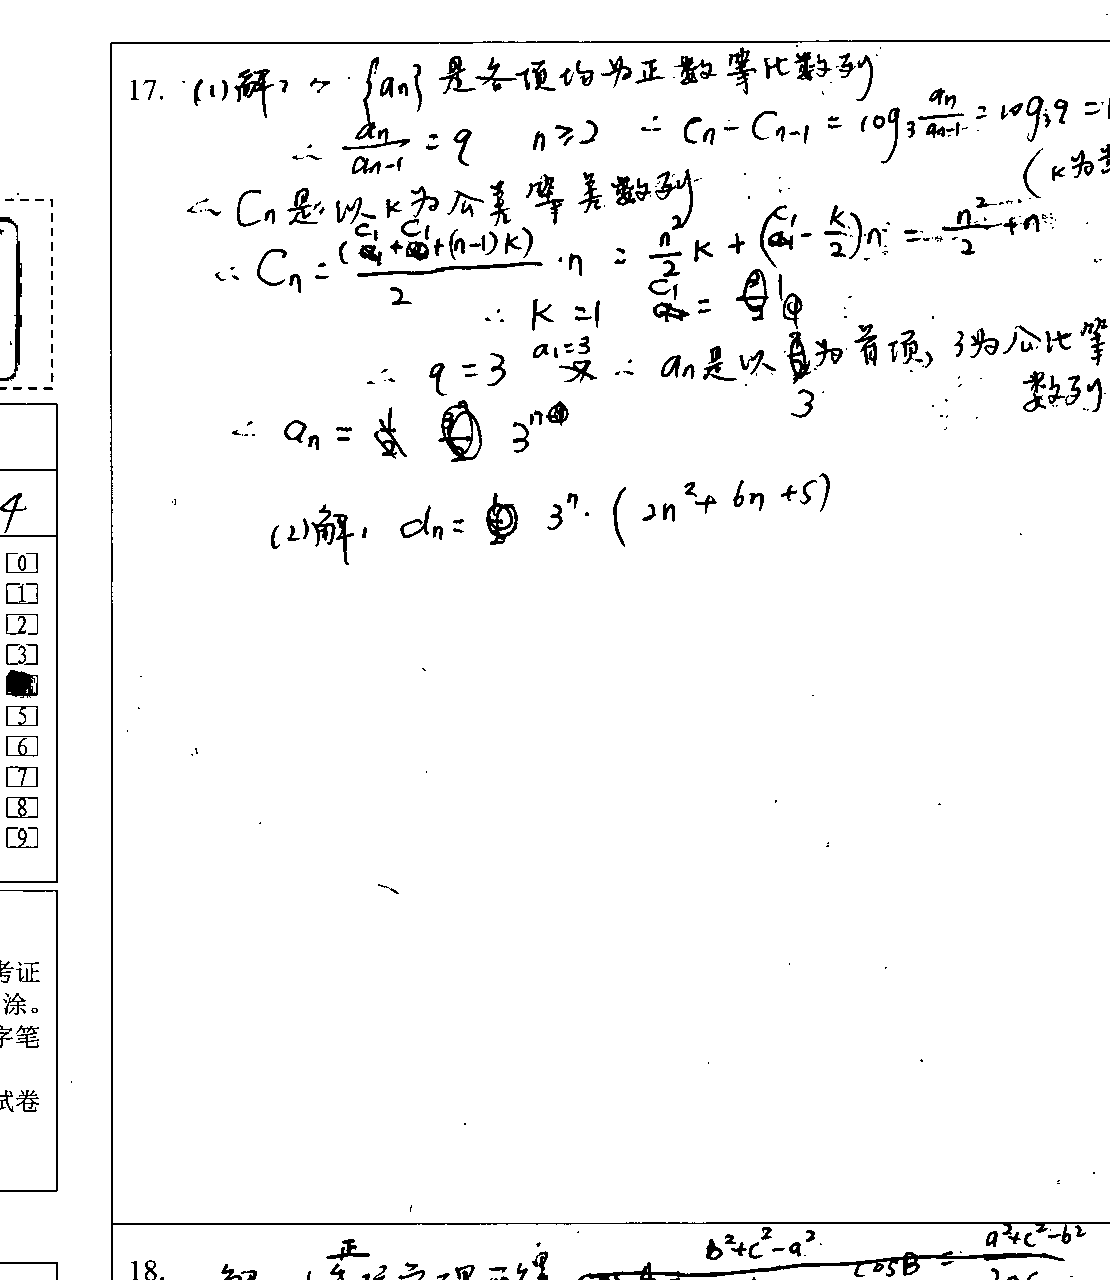 17. (1)解: ∵ {an} 是各项均为正数等比数列
∴ an/an-1 = q n≥2 ∴ Cn - Cn-1 = log3 an/an-1 = log3 q =
(K为
∴ Cn是以K为公差等差数列
∴ Cn = (C1+C1+(n-1)K)/2 ·n = n²/2 K + (C1 - K/2)n = n²/2 + n
∴ K=1 C1 = 1
∴ q = 3 a1=3 ∴ an是以 3 为首项, 3为公比等
数列
∴ an = 3^n
(2)解, dn = 3^n · (2n² + 6n + 5)
4
0
1
2
3
5
6
7
8
9
考证
涂。
字笔
试卷
18. 解
b²+c²-a²
cosB = a²+c²-b²